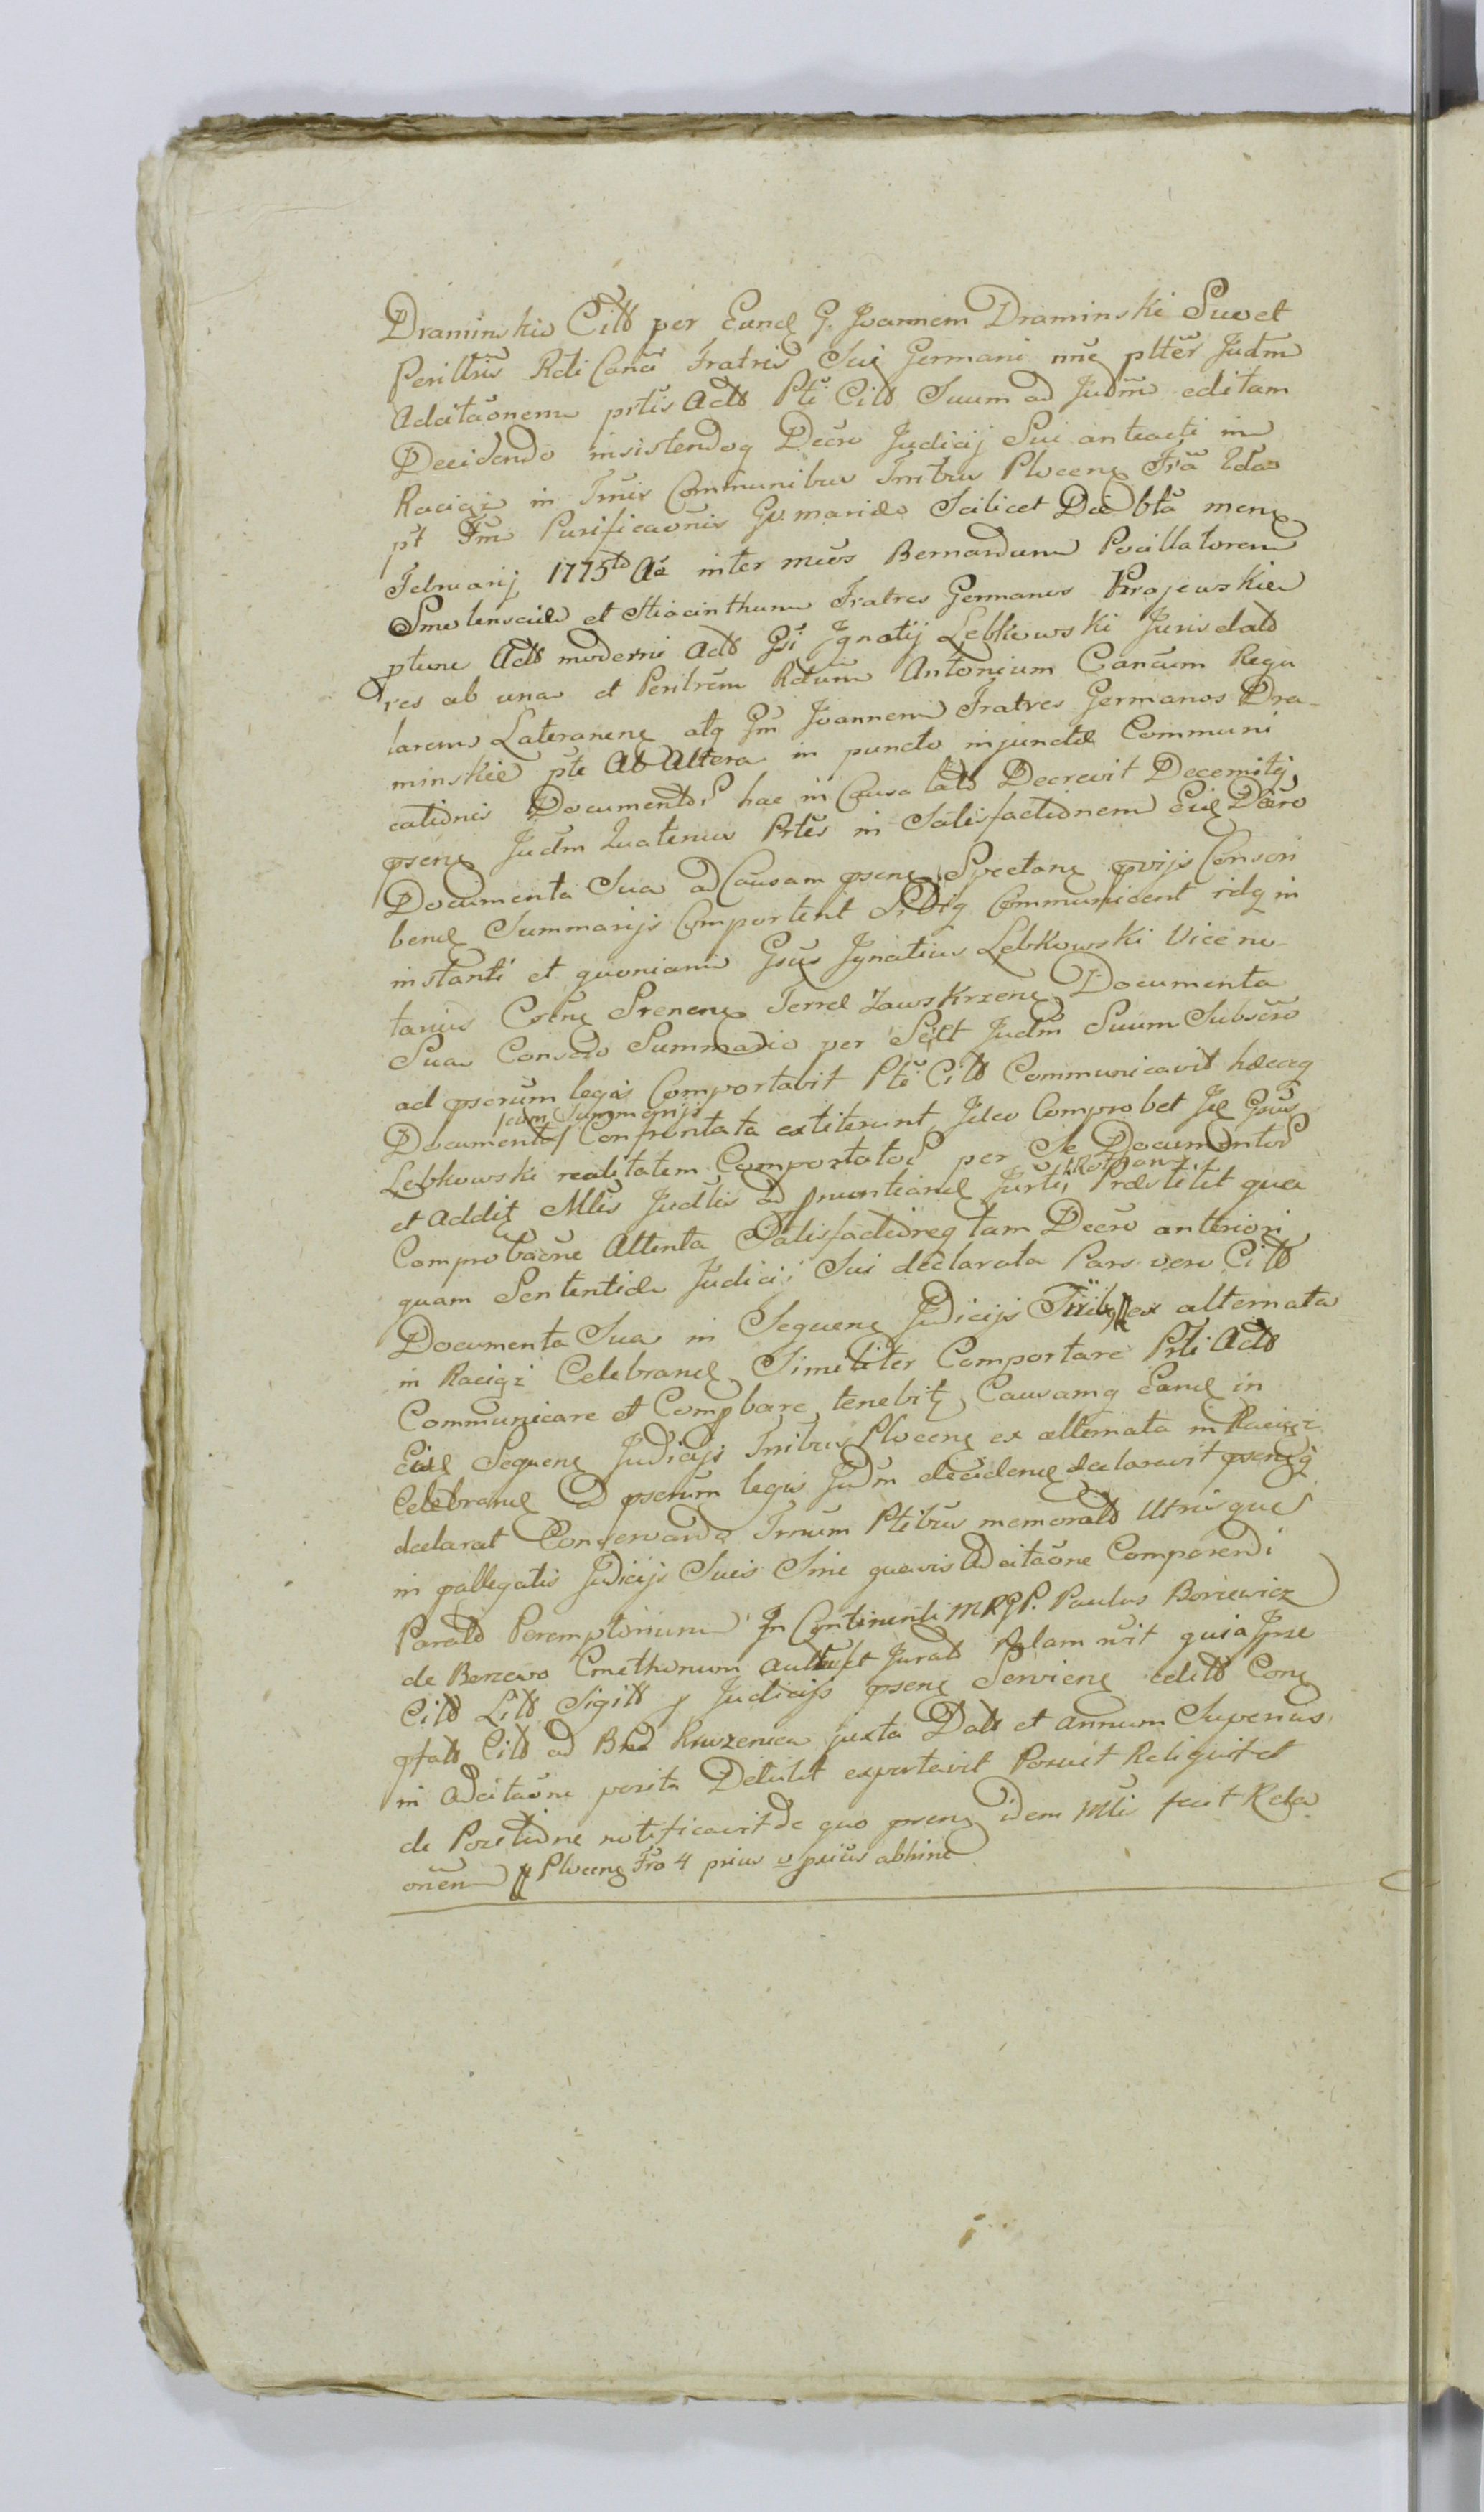 Draminskie Citt per Eund G. Joannem Draminski Suo et
Perillris Rdi Canci Fratris Sui Germani nne ptter Judm
Adcitaonem prtis Actt Pti Citt Suum ad Judm editam
Decidendo insistendoq Decro Judicij Sui anteacti in
Raciąż in Trnis Communibus Tritrus Plocenę Fra 2da
pt Fm Purificaonis Gl. Mariae Scilicet Die 6ta menę
Februarij 1775to Aa inter mccos Bernardum Pocillatorem
Smolenscie et Hiacinthum Fratres Germanos Krajewskie
ptune Actt moderni Actt Gsi Ignatij Lebkowski Jurisdatt
res ab una et Perilrem Rdum Antonium Cancum Regu
larem Lateranenę atq Gm Joannem Fratres Germanos Dra-
minskie pte Ab Altera in puncto injunctae Communi
cationis Documentor hac in Causa latt Decrevit Decernitq
psenę Judm Quatenus Prtes in Satisfactionem Eid Decro
Documenta Sua ad Causam psenę Spectanę pvijs Conscri
bend Summarijs Comportent Sibiq Communicent idq in
instanti et quoniam Gsus Ignatius Lebkowski Vice no-
tarius Csrenę Srenenę Terrae Zawskrzenę Documenta
Sua Conscto Summario per Sect Judm Suum Subscro
ad pscrum legis Comportavit Pti Citt Communicavit hæcq
Documenta cum Summarijs Confrontata extiterunt Ideo Comprobet Id Gsus
Lebkowski realitatem Comportator per Se Documentor
et Addit Mlis Judlis ad pnuntiand Jurti Præstitit qua
Comprobaone Attenta Satisfactioneq tam Decro anteriori
quam Sententiae Judicij Sui declarata Pars vero Citt
Documenta Sua in Sequenę Judicijs Tribq ex alternata
in Raciąż Celebrand Similiter Comportare Prti Actt
Communicare et Compbare tenebit, Causamq Eand in
Eisd Sequenę Judicijs Tritrus Plocenę ex alternata in Raciąż
Celebrand ad pscrum legis Judm decidend declaravit psenq
declarat Conservando Trnum Ptibus memoratt Utrisque
in pallegatis Judicijs Suis Sine quavis Adcitaone Comparendi
Paratt Peremptorium In Continenti MRGP. Paulus Borzewicz
de Borzewo Cmethonum Autht et Juratt Palam nvit quia Ipse
Citt Litt Sigitt p Judicijs psenę Servienę editt Conę
pfatt Citt ad Bna Kruzenica juxta Datt et annum Superius
in Adcitaone posita Detulit exportavit Posuit Reliquit et
de Positione notificavit de quo psens idem Mlis fecit Rela
onem // Plocenę Fro 4 prius v psius abhinc